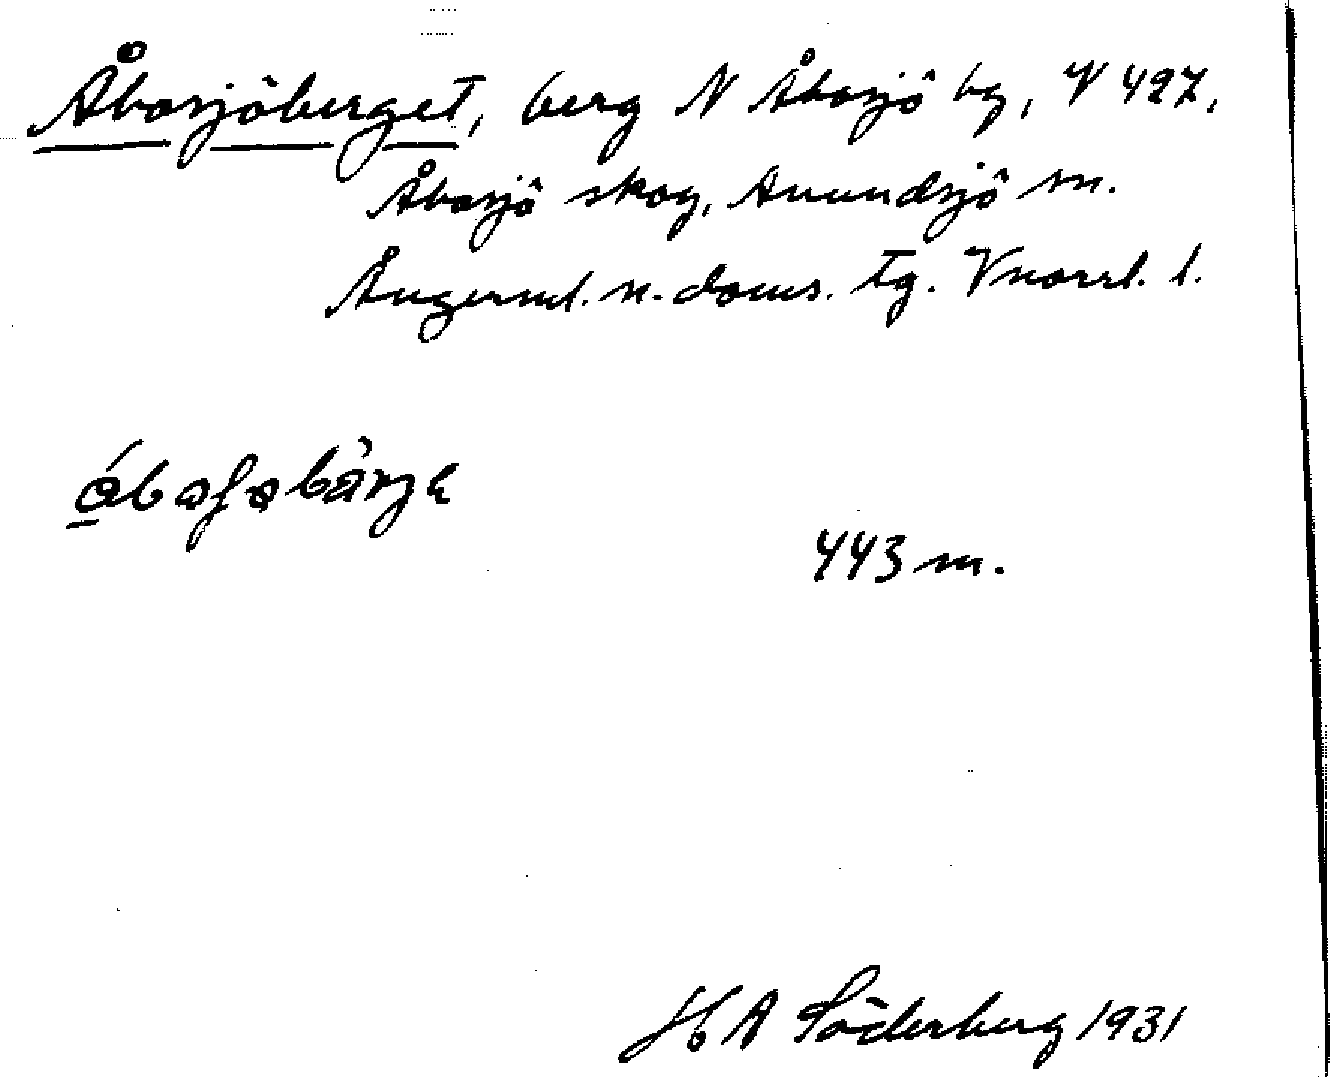 Åbosjöberget, berg N Åbosjö by, V 427,
Åbosjö skog, Anundsjö sn.
Ångerml. n. doms. tg. Vnorrl. l.
443 m.
H A Söderberg 1931